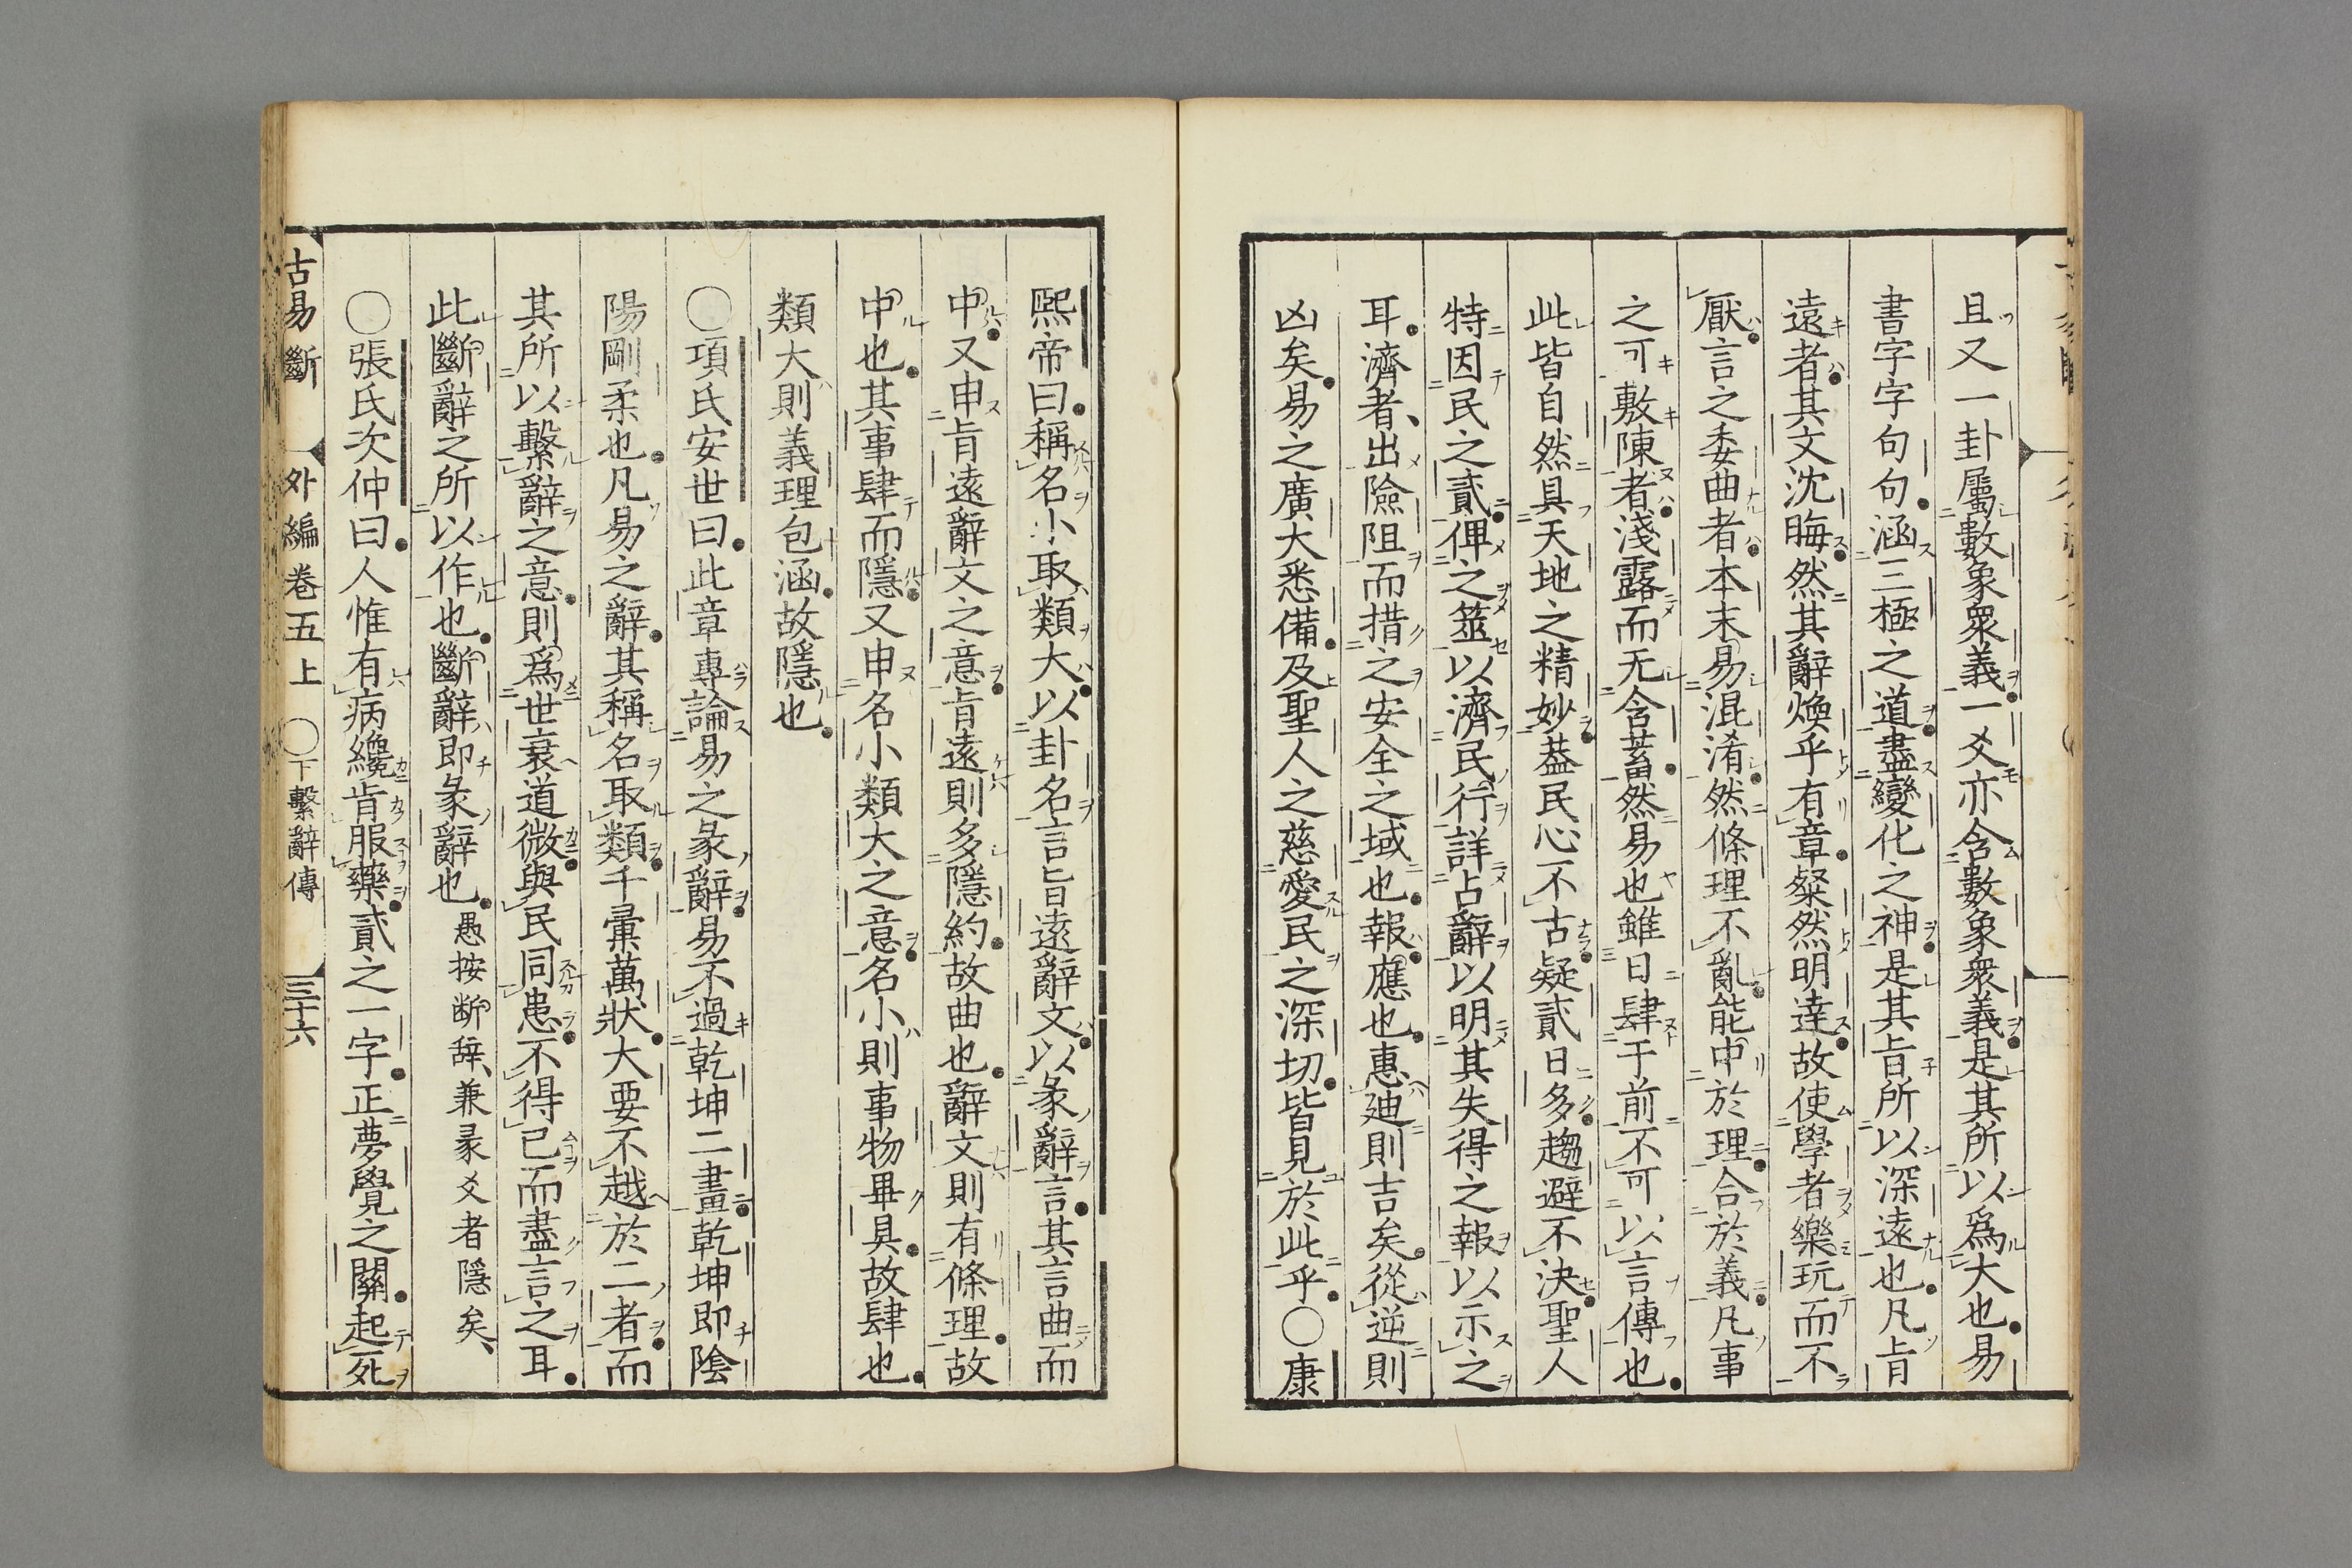 且又一卦屬數象衆義一爻亦含數象衆義是其所以爲大也易
書字字句句涵三極之道盡變化之神是其旨所以深遠也凡旨
遠者其文沈晦然其辭煥乎有章粲然明達故使學者樂玩而不
厭言之委曲者本末易混淆然條理不亂能中於理合於義凡事
之可敷陳者淺露而无含蓄然易也雖日肆于前不可以言傳也
此皆自然具天地之精妙葢民心不古疑貳日多趨避不決聖人
特因民之貳俾之筮以濟民行詳占辭以明其失得之報以示之
耳濟者出險阻而措之安全之域也報應也惠廸則吉矣從逆則
凶矣易之廣大悉備及聖人之慈愛民之深切皆見於此乎〇康
熙帝曰稱名小取類大以卦名言旨遠辭文以彖辭言其言曲而
中又申旨遠辭文之意旨遠則多隱約故曲也辭文則有條理故
中也其事肆而隱又申名小類大之意名小則事物畢具故肆也
類大則義理包涵故隱也
〇項氏安世曰此章專論易之彖辭易不過乾坤二畫乾坤即陰
陽剛柔也凡易之辭其稱名取類千彙萬狀大要不越於二者而
其所以繫辭之意則爲世衰道微與民同患不得已而盡言之耳
此斷辭之所以作也斷辭即彖辭也愚按断辞兼彖爻者隱矣
〇張氏次仲曰人惟有病纔肯服藥貳之一字正夢覺之關起死
古易斷 外編卷五上 〇下繫辭傳 三十六